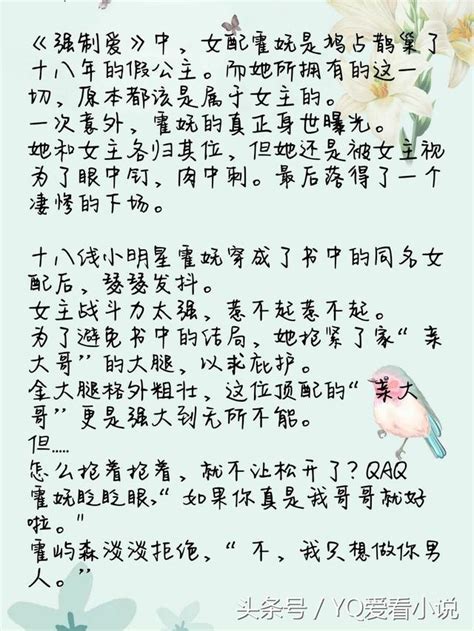 《强制爱》中，女配霍妩是鸠占鹊巢了
十八年的假公主。而她所拥有的这一
切，原本都该是属于女主的。
一次意外，霍妩的真正身世曝光。
她和女主各归其位，但她还是被女主视
为了眼中钉，肉中刺。最后落得了一个
凄惨的下场。
十八线小明星霍妩穿成了书中的同名女
配后，瑟瑟发抖。
女主战斗力太强，惹不起惹不起。
为了避免书中的结局，她抱紧了家“亲
大哥”的大腿，以求庇护。
金大腿格外粗壮，这位顶配的“亲大
哥”更是强大到无所不能。
但……
怎么抱着抱着，就不让松开了？QAQ
霍妩眨眨眼，“如果你真是我哥哥就好
啦。”
霍屿森淡淡拒绝，“不，我只想做你男
人。”
头条号 / YQ爱看小说